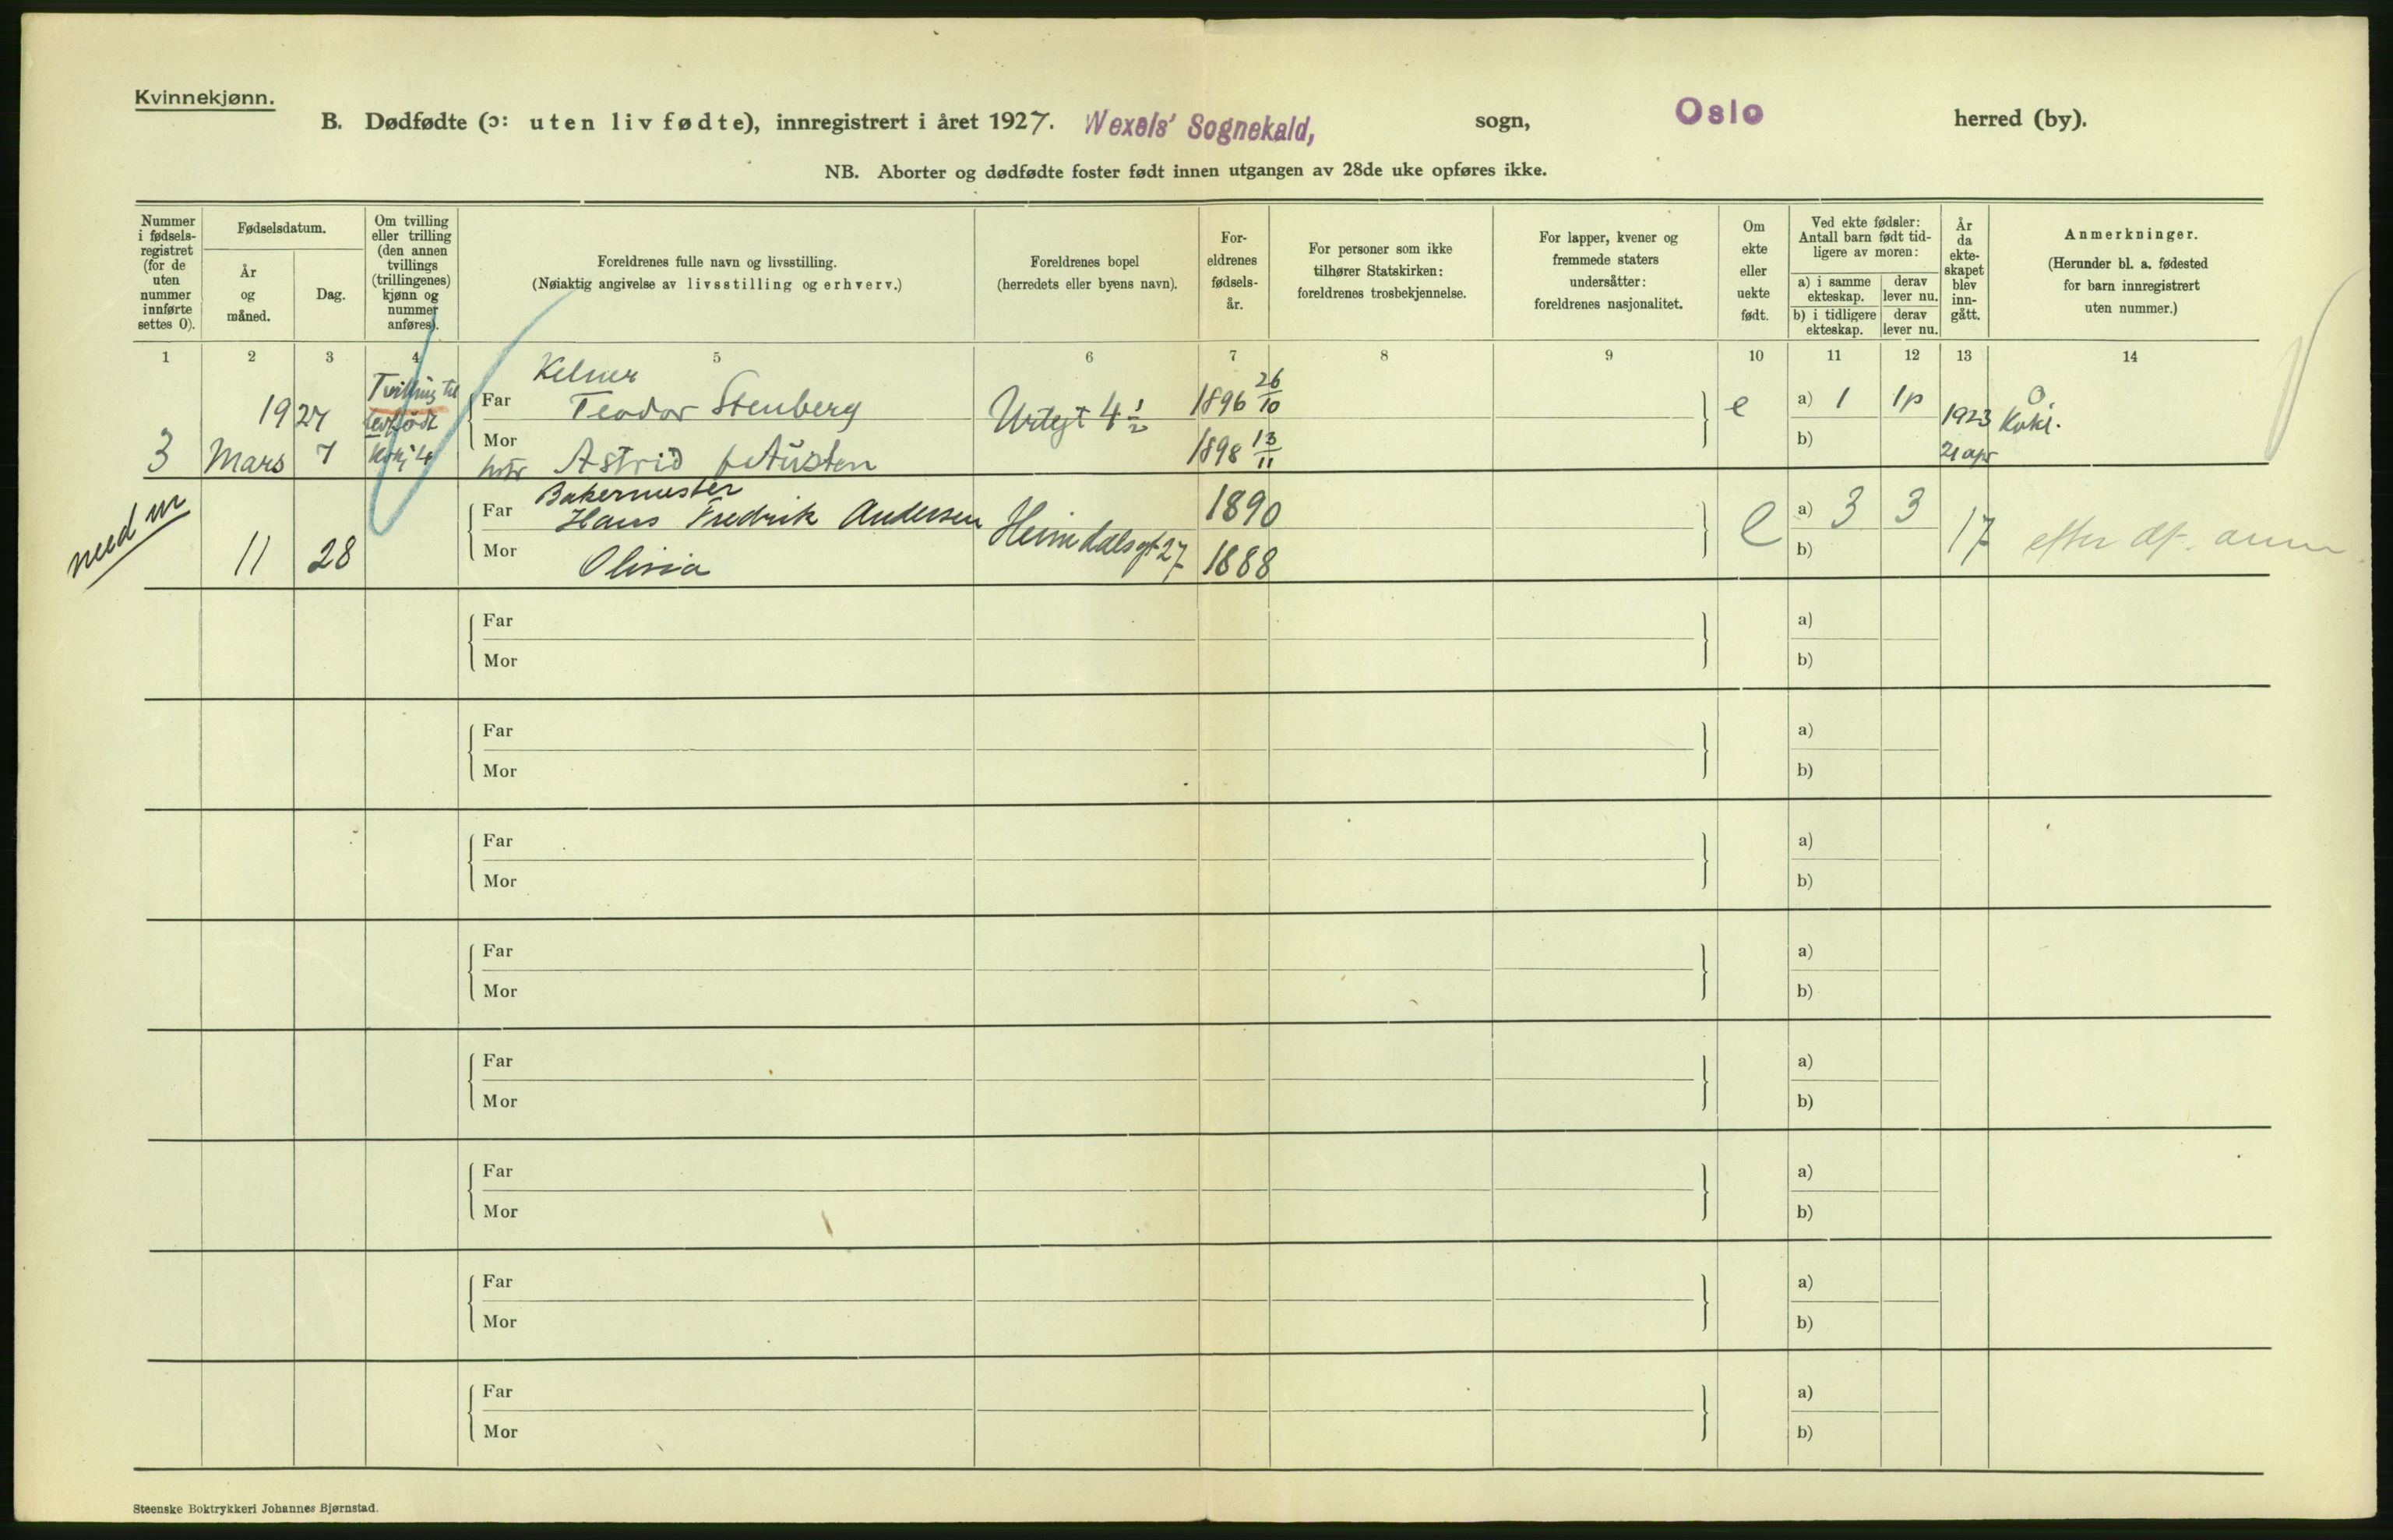 Kvinnekjønn.
B. Dødfødte (ɔ: uten liv fødte), innregistrert i året 1927. Wexels' Sognekald, sogn, Oslo herred (by).
NB. Aborter og dødfødte foster født innen utgangen av 28de uke opføres ikke.
Nummer i fødsels-registret (for de uten nummer innførte settes 0).
Fødselsdatum.
År og måned.
Dag.
Om tvilling eller trilling (den annen tvillings (trillingenes) kjønn og nummer anføres).
Foreldrenes fulle navn og livsstilling.
(Nøiaktig angivelse av livsstilling og erhverv.)
Foreldrenes bopel
(herredets eller byens navn).
For-eldrenes fødsels-år.
For personer som ikke tilhører Statskirken: foreldrenes trosbekjennelse.
For lapper, kvener og fremmede staters undersåtter: foreldrenes nasjonalitet.
Om ekte eller uekte født.
Ved ekte fødsler: Antall barn født tid-ligere av moren:
a) i samme ekteskap.
derav lever nu.
b) i tidligere ekteskap.
derav lever nu.
År da ekte-skapet blev inn-gått.
Anmerkninger.
(Herunder bl. a. fødested for barn innregistrert uten nummer.)
1 2 3 4 5 6 7 8 9 10 11 12 13 14
3 1927 Mars 7 Tvilling til levfødt
Far Kelner Teodor Stenberg
Mor Astrid f. Austen
Urtegt 4 1/2
1896 26/10
1898 13/11
e a) 1 1p b) 1923 21 apr
Kvkl.
med m
11 28
Far Bakermester Hans Fredrik Andersen
Mor Olivia
Heimdalsgt 27
1890
1888
e a) 3 3 b) 17 efter df. anm
Far a)
Mor b)
Far a)
Mor b)
Far a)
Mor b)
Far a)
Mor b)
Far a)
Mor b)
Far a)
Mor b)
Far a)
Mor b)
Far a)
Mor b)
Steenske Boktrykkeri Johannes Bjørnstad.